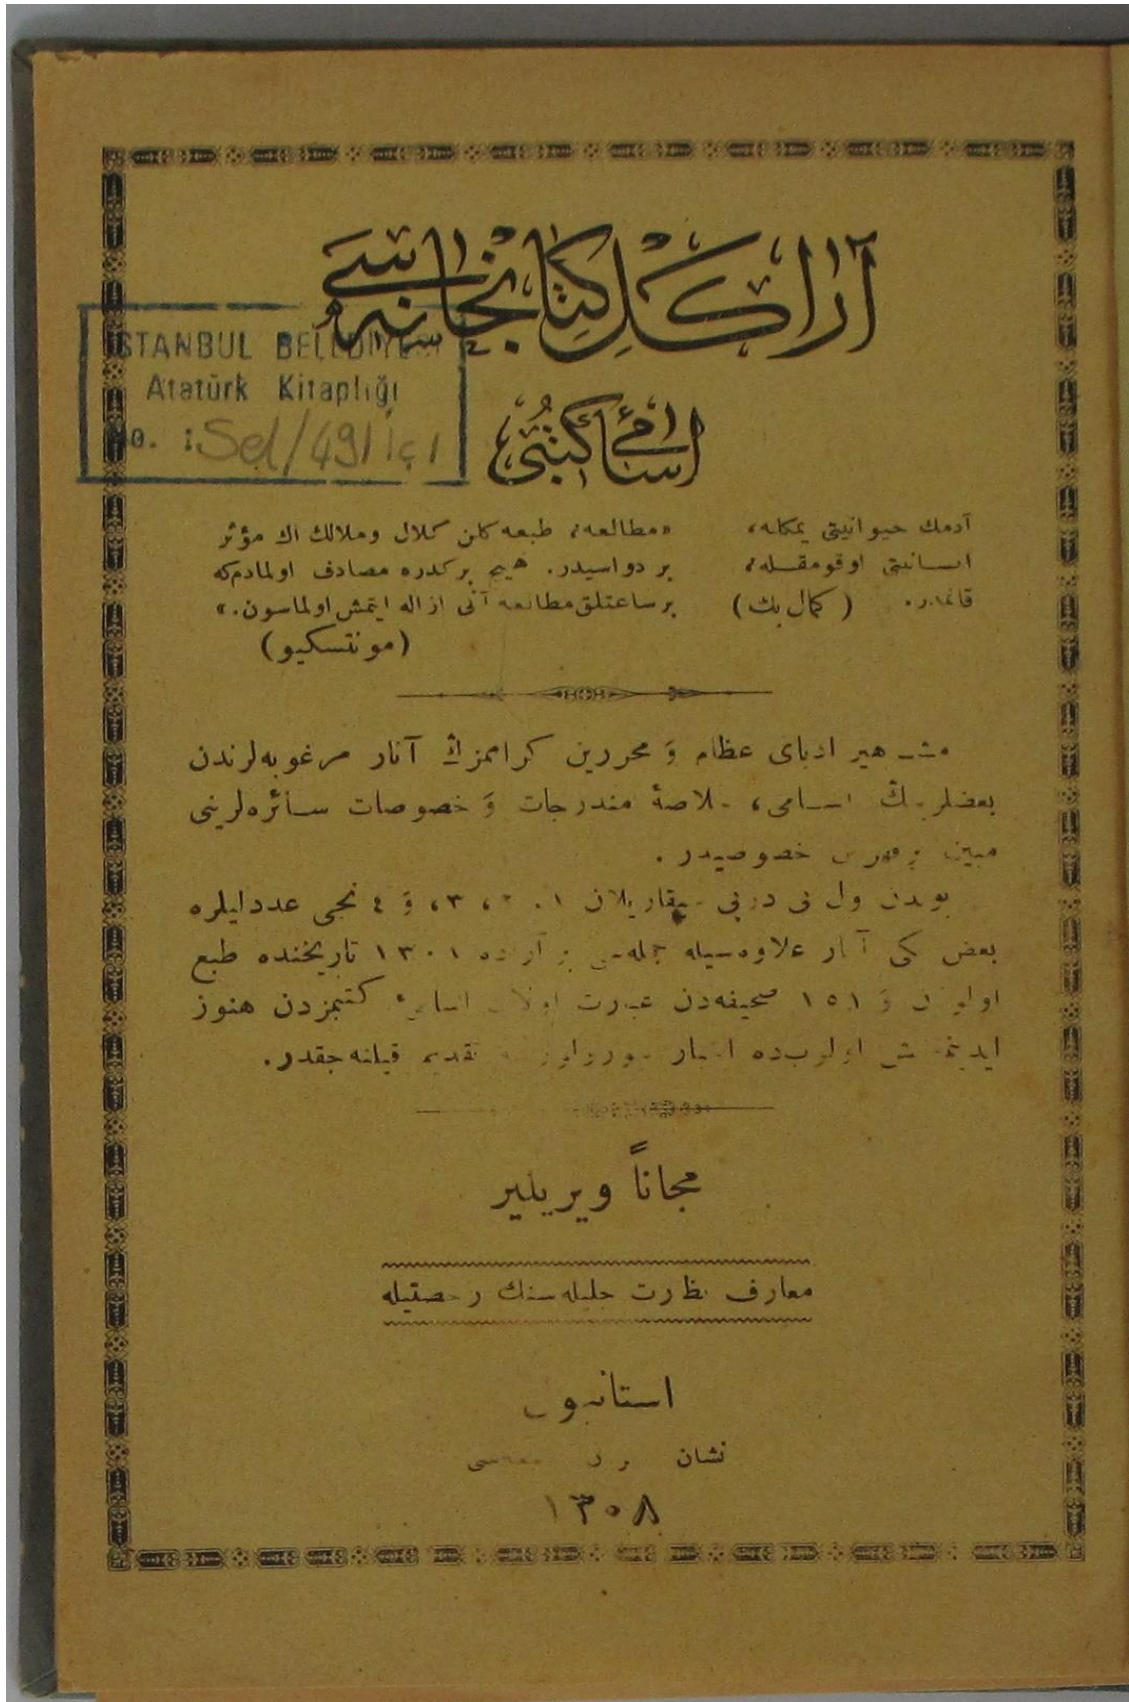 آراكل كتابخانه‌سى
اسامئ كتبى
ISTANBUL BELEDİYESİ
Atatürk Kitaplığı
No. : Sel/491 İçi
آدمك حيوانيتى يمكله،
انسانيتى اوقومقله،
قائمدر. (كمال بك)
«مطالعه، طبعه كلن كلال وملالك اك مؤثر
بر دواسيدر. هيچ بر كدره مصادف اولمادم كه
بر ساعتلق مطالعه آنى ازاله ايتمش اولماسون.»
(مونتسكيو)
مشاهير ادباى عظام وَ محررين كراممزڭ آثار مرغوبه‌لرندن
بعضلرينڭ اسامى، خلاصۀ مندرجات وَ خصوصات سائره‌لرينى
مبين بر فهرس خصوصيدر.
بوندن اول پى درپى چيقاريلان ١، ٢، ٣، وَ ٤ نجى عددليلره
بعض كى آثار علاوه‌سيله جمله‌سى بر آراده ١٣٠١ تاريخنده طبع
اولونان وَ ١٥١ صحيفه‌دن عبارت اولان اسامئ كتبمزدن هنوز
ايدينمامش اولوب‌ده تقديم قيلنه‌جقدر.
مجاناً ويريلير
معارف نظارت جليله‌سنك رخصتيله
استانبول
نشان مطبعه‌سى
١٣٠٨